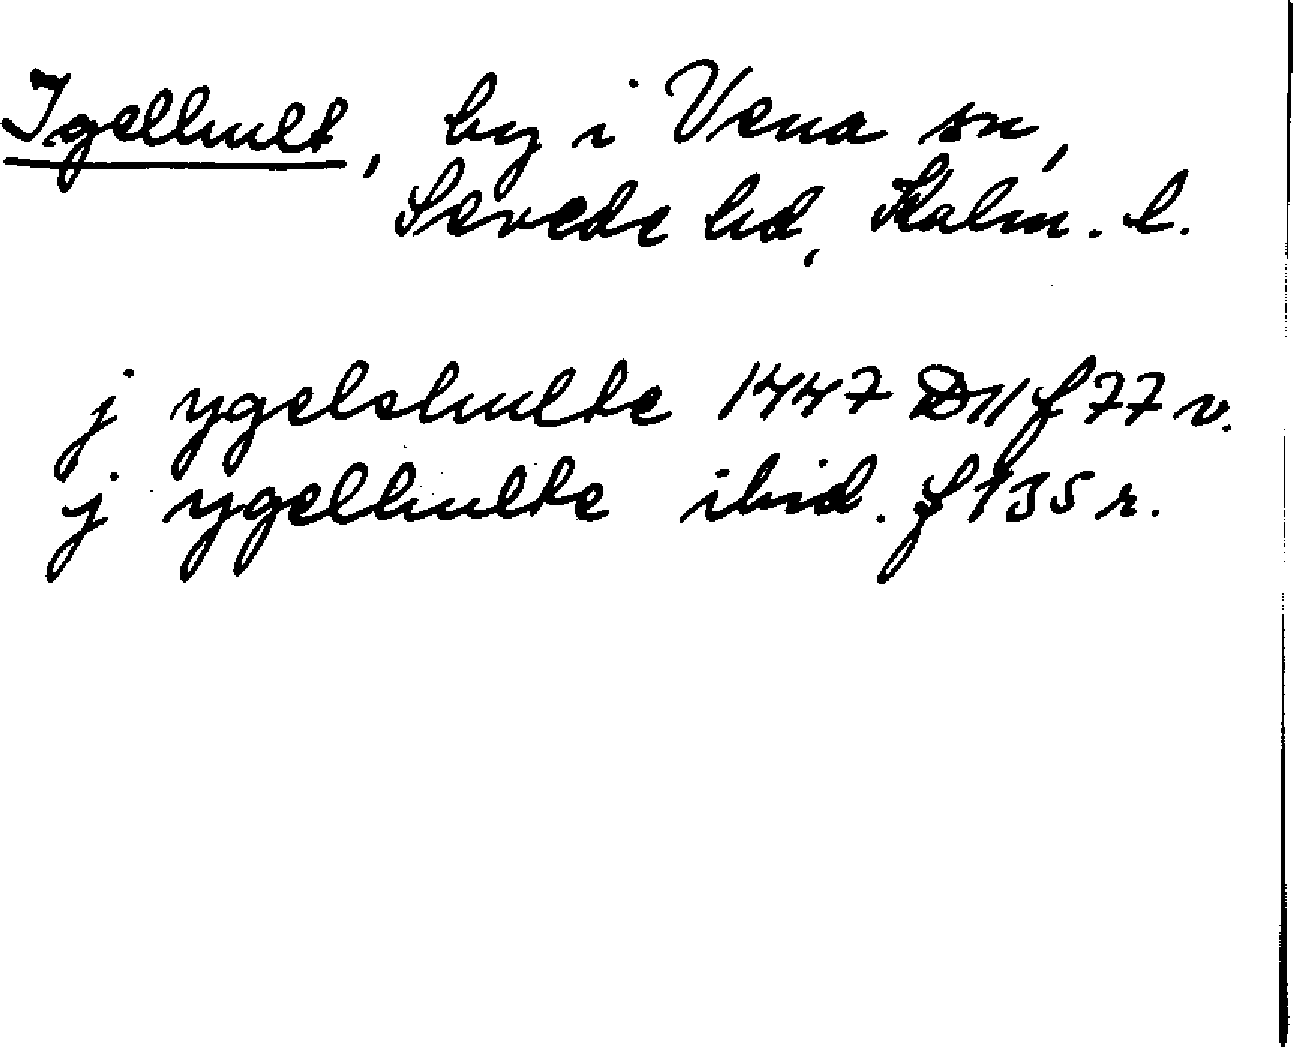 Igelhult, by i Vena sn,
Sevede hd, Kalm. l.
j ygelshulte 1447 D11 f 77 v.
j ygelhulte ibid. f 135 r.